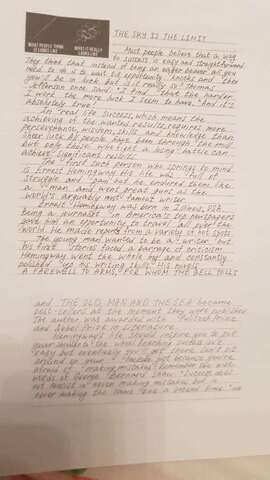 WHAT PEOPLE THINK IT LOOKS LIKE
WHAT IT REALLY LOOKS LIKE
THE SKY IS THE LIMIT
Most people believe that a way
to success is easy and straightforward.
They think that instead of being an eager beaver all you
need to do is to wait till opportunity knocks and then
you'll be in luck but is it really so? Thomas
Jefferson once said: "I find that the harder
I work, the more luck I seem to have." And it's
absolutely true!
In real life success, which means the
achieving of the wanted results, requires more
perseverance, wisdom, skills and knowledge than
sheer luck. All people have been through the mill
but only those who fight a losing battle can
achieve significant results.
The first such person who springs to mind
is Ernest Hemingway. His life was full of
struggle and pain but he endured them like
a man and went great guns as the
world's arguably most famous writer.
Ernest Hemingway was born in Illinois, USA.
Being a journalist in America's top newspapers
gave him an opportunity to travel all over the
world. He made reports from a variety of hot spots.
The young man wanted to be a writer but
his first stories faced a barrage of criticism.
Hemingway went the whole hog and constantly
polished up his writing skills. His novels
A FAREWELL TO ARMS, FOR WHOM THE BELL TOLLS
and THE OLD MAN AND THE SEA became
best-sellers at the moment they were published.
The author was awarded with Pulitzer Prize
and Nobel Prize in Literature.
Hemingway's life should inspire you to put
your shoulder to the wheel. Reaching success isn't
easy but eventually you'll get there. Don't sit
around on your hands just because you're
afraid of making mistakes. Remember the wise
words of George Bernard Shaw: "Success does
not consist in never making mistakes but in
never making the same one a second time."